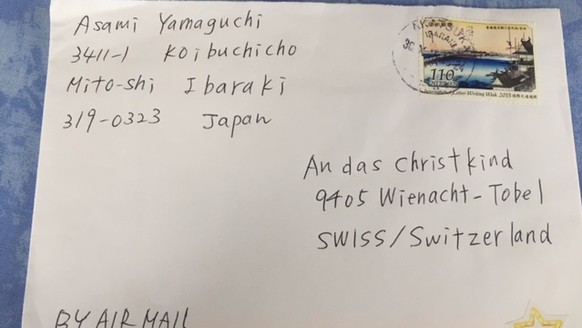 Asami Yamaguchi
3411-1 Koibuchicho
Mito-shi Ibaraki
319-0323 Japan
110
Letter Writing Week 2015
An das Christkind
9405 Wienacht-Tobel
SWISS/Switzerland
BY AIR MAIL